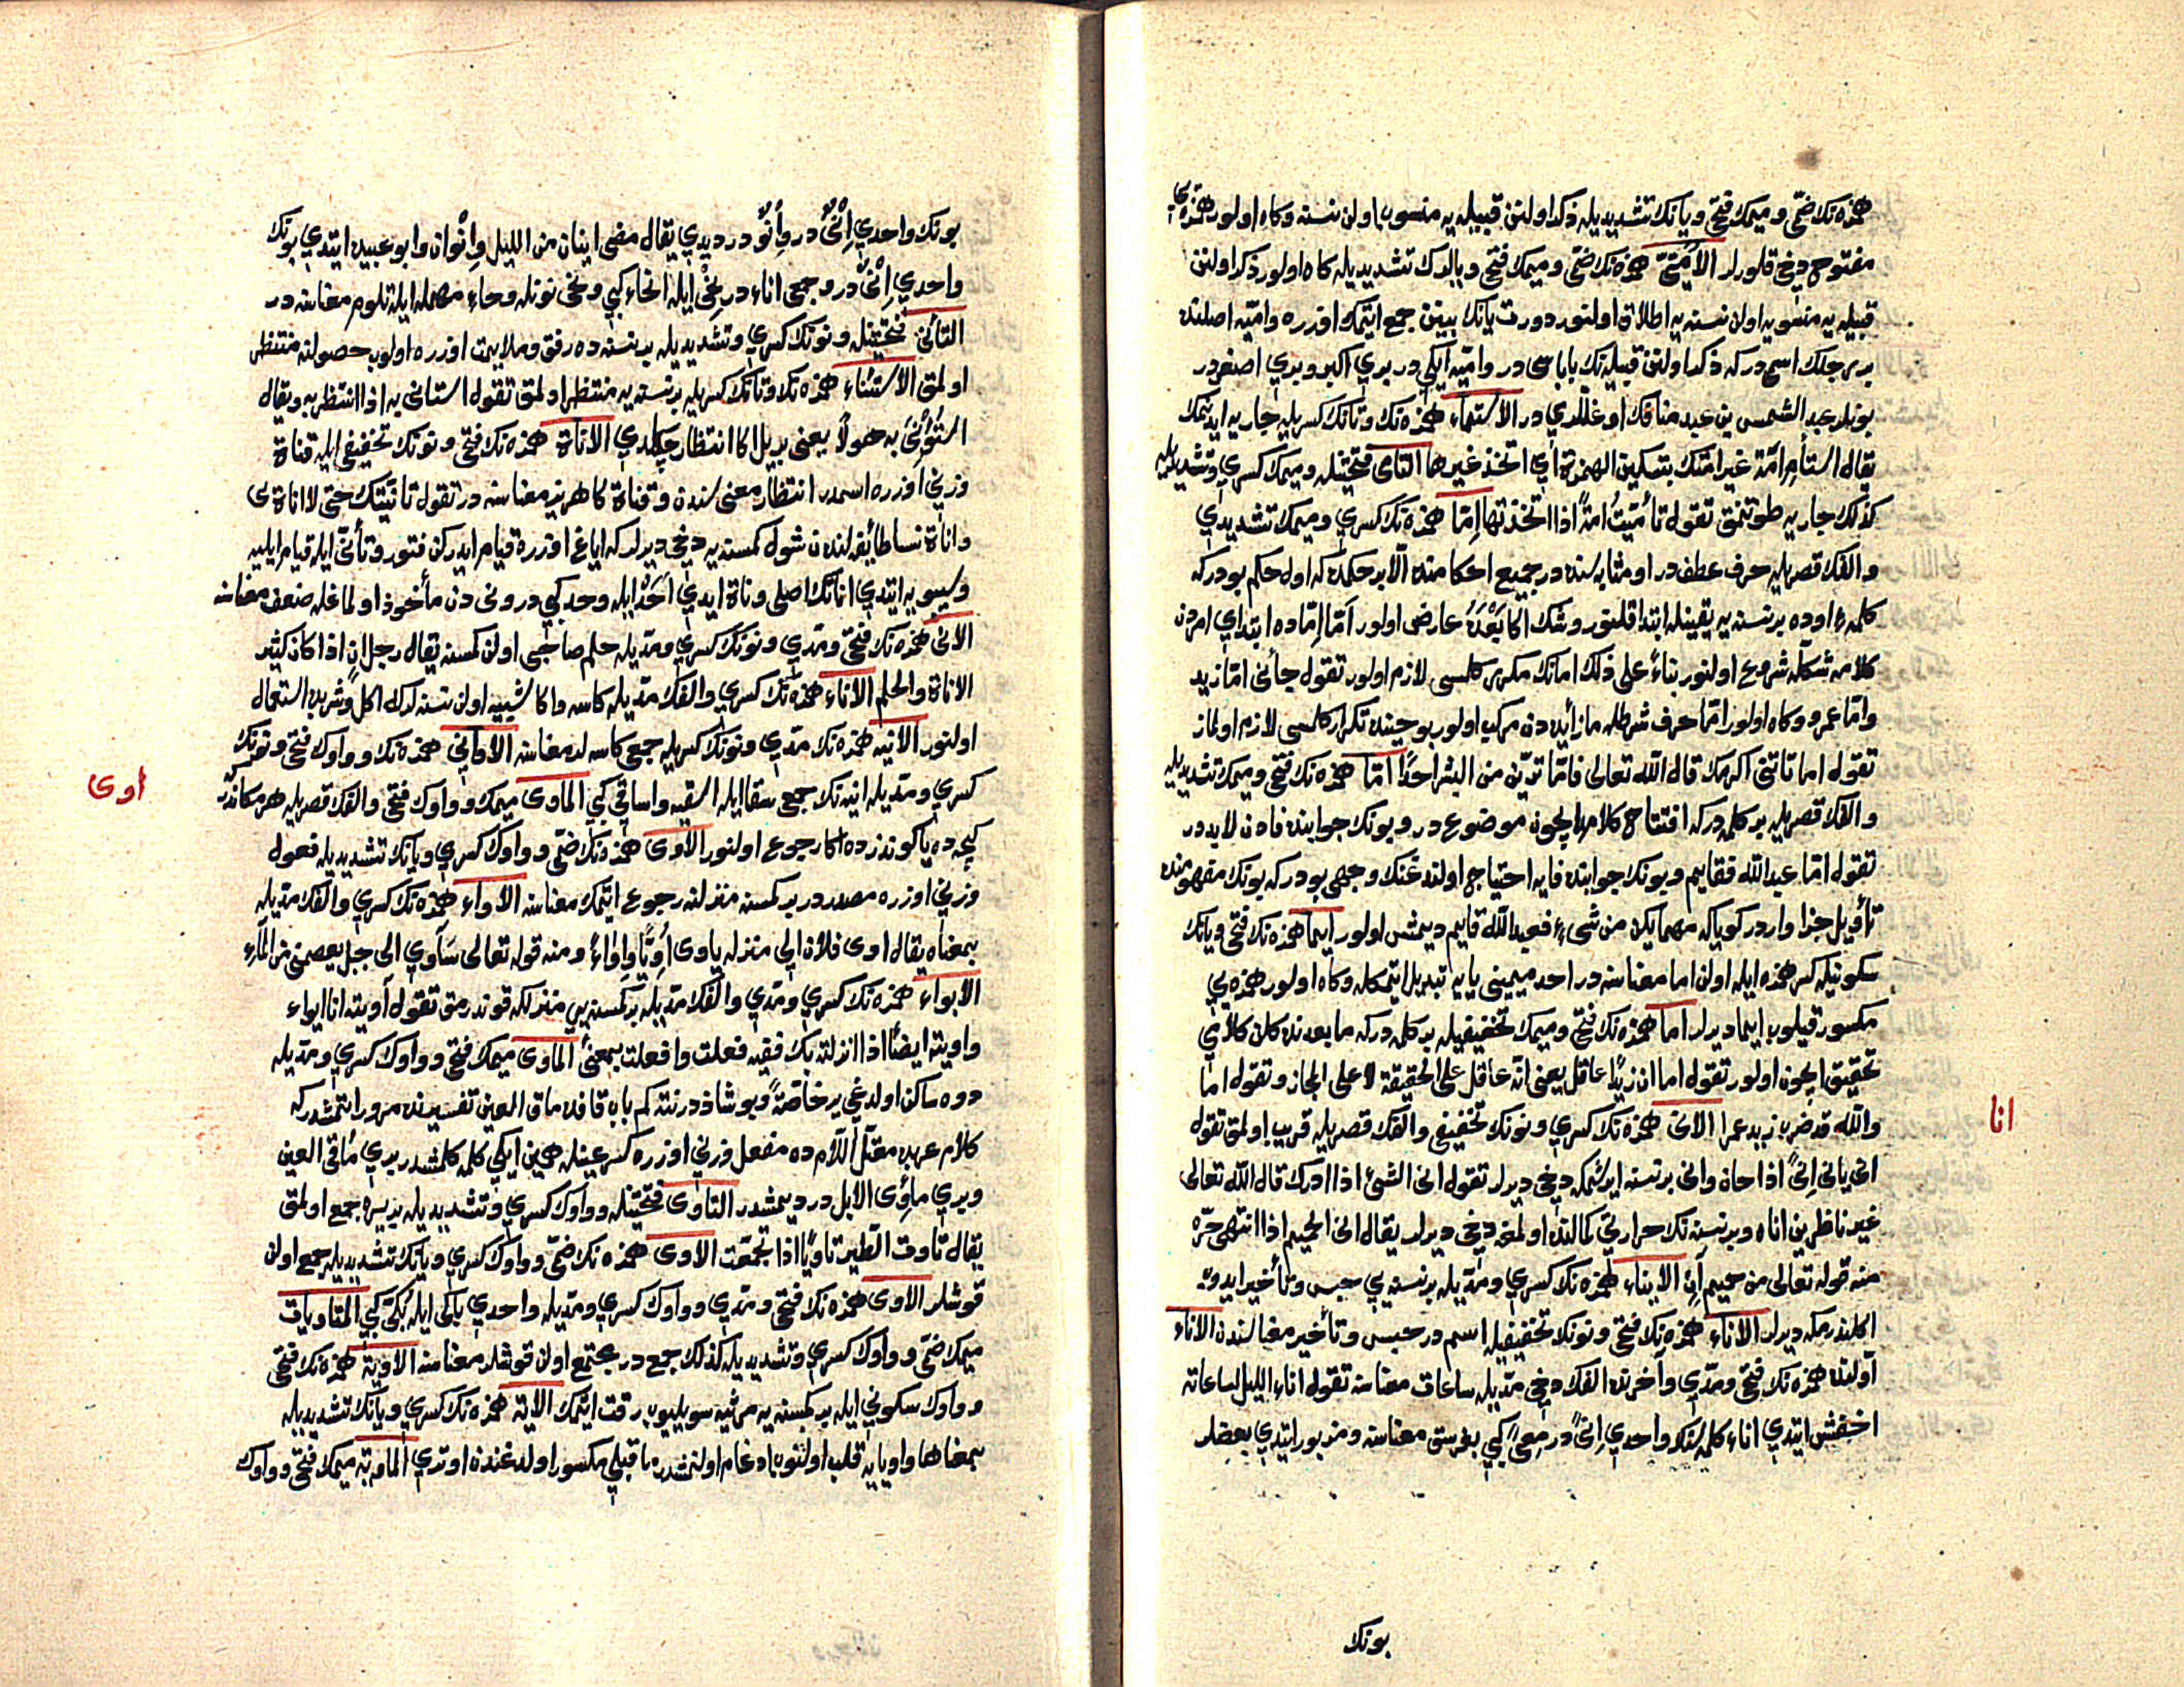 همزه‌نك ضمّی و میمك فتحی و یانك تشدیدیله ذكر اولنن قبیله‌یه منسوب اولن نسنه و كاه اولور همزه‌یی
مفتوح دخی قلورلر الأمیّیّ همزه‌نك ضمّی و میمك فتحی و یالرك تشدیدیله كاه اولور ذكر اولنن
قبیله‌یه منسوب اولان نسنه‌یه اطلاق اولنور دورت یانك بینن جمع ایتمك اوزره و امیّه اصلنده
بر رجلك اسمیدر كه ذكر اولنن قبیله‌نك باباسی در و امیّه ایكی در بری اكبر و بری اصغردر
بونلر عبد الشمس بن عبد منافك اوغللری در الاستماء همزه‌نك و تانك كسریله جاریه ایدنمك
یقال استأم امة غیر امتك بتسكین الهمزة ای اتخذ غیرها التامی فتحتینله و میمك كسری و تشدیدیله
كذلك جاریه طوتنمق تقول تأمّیتُ امةً اذا اتخذتها اِمّا همزه‌نك كسری و میمك تشدیدی
و الفك قصریله حرف عطفدر او مثابه‌سنده در جمیع احكامنده الّا بر حكمده كه اول حكم بودركه
كلمهٔ اوده بر نسنه‌یه یقینله ابتدا قلنور و شك اكا بَعْدَهُ عارض اولور امّا اِمّاده ابتدای امردن
كلامه شكله شروع اولنور بناءً علی ذلك امانك مكرر كلمسی لازم اولور تقول جأنی امّا زید
و امّا عمرو و كاه اولور امّا حرف شرطله ما زائده‌دن مركب اولور بو حینده تكرار كلمسی لازم اولماز
تقول اما تاتنی اكرمك قال الله تعالی فامّا ترینّ من البشر احدًا امّا همزه‌نك فتحی و میمك تشدیدیله
و الفك قصریله بر كلمه‌دركه افتتاح كلام ایچون موضوع در و بونك جوابنده فادن لابد در
تقول امّا عبدالله فقایم و بونك جوابنده فایه احتیاج اولندغنك وجهی بودركه بونك مفهومنده
تأویل جزا واردر كویاكه مهما یكن من شیء فعبدالله قایم دیمش اولور ایما همزه‌نك فتحی و یانك
سكونیله كسر همزه ایله اولن اما معناسنه در احد میمینی یایه تبدیل ایتمكله و كاه اولور همزه‌یی
مكسور قیلوب ایما دیرلر اما همزه‌نك فتحی و میمك تخفیفیله بر كلمه‌دركه مابعدنده كلن كلامی
تحقیق ایچون اولور تقول اما ان زیدًا عاقل یعنی انّه عاقل علی الحقیقة لا علی المجاز و تقول اما
والله قد ضرب زید عمرا الانی همزه‌نك كسری و نونك تخفیفی و الفك قصریله قریب اولمق تقول
انی یانی اِنیً اذا حان و انی بر نسنه ایرشمكه دخی دیرلر تقول انی الشئ اذا ادرك قال الله تعالی
غیر ناظرین اناه و بر نسنه‌نك حرارتی كمالنده اولمغه دخی دیرلر یقال انی الحمیم اذا انتهی حرّه
منه قوله تعالی من حمیم آنٍ الایناء همزه‌نك كسری و مدّیله بر نسنه‌یی حبس و تأخیر ایدوب
اكلندرمكه دیرلر الأناء همزه‌نك فتحی و نونك تخفیفیله اسم در حبس و تأخیر معناسندن الاناء
اولنده همزه‌نك فتحی و مدّی و آخرنده الفك دخی مدّیله ساعات معناسنه تقول اناء اللیل لساعاته
اخفش ایتدی اناء كلمه‌سنك واحدی اِنیً در مِعیً كبی بغرسق معناسنه و مزبور ایتدی بعضلر
انا
بونك
بونك واحدی اِنْیٌ در و اِنْوٌ در دیدی یقال مضی انیان من اللیل و اِنْوان و ابو عبید ایتدی بونك
واحدی اِنْیٌ در و جمعی اناء در نِحْی ایله انحاء كبی و نحی نونله و حاء مهمله ایله تلوم معناسنه در
التأنی فتحتینله و نونك كسری و تشدیدیله بر نسنه‌ده رفق و ملایمت اوزره اولوب حصولنه منتظر
اولمق الاستئناء همزه‌نك و تانك كسریله بر نسنه‌یه منتظر اولمق تقول استانی به اذا انتظر به و یقال
استُؤْنِیَ به حولًا یعنی بر ییل اكا انتظار چكلدی الاناة همزه‌نك فتحی و نونك تخفیفی ایله قناة
وزنی اوزره اسمدر انتظار معنی‌سندن و قناة كاهریز معناسنه در تقول تانّیتك حتی لا اناة لی
و اناة نسا طائفه‌لندن شول كمسنه‌یه دخی دیرلر كه ایاغ اوزره قیام ایدركن فتور و تأنّی ایله قیام ایلیه
و سیبویه ایتدی اناتك اصلی وناة ایدی اَحَدْ ایله وحد كبی در ونی دن مأخوذ اولماغله ضعف معناسنه
الانی همزه‌نك فتحی و مدّی و نونك كسری و مدّیله حلم صاحبی اولن كمسنه یقال رجل انٍ اذا كان كثیر
الاناة والحلم الاناء همزه‌نك كسری و الفك مدّیله كاسه و اكا شبیه اولن نسنه‌لرك اكل و شربده استعمال
اولنور الانیه همزه‌نك مدّی و نونك كسریله جمع كاسه‌لر معناسنه الاوانی همزه‌نك و واوك فتحی و نونك
كسری و مدّیله انیه‌نك جمعی سقا ایله اسقیه و اساقی كبی الماوی میمك و واوك فتحی و الفك قصریله هر مكاندر
كیجه‌ده یا كوندزده اكا رجوع اولنور الأوی همزه‌نك ضمّی و واوك كسری و یانك تشدیدیله فعول
وزنی اوزره مصدردر بر كمسنه منزلنه رجوع ایتمك معناسنه الاواء همزه‌نك كسری و الفك مدّیله
بمعناه یقال اوی فلان الی منزله یاوی اُویًّا و اِواءً و منه قوله تعالی سَآوی الی جبل یعصمنی من المآء
الایواء همزه‌نك كسری و مدّی و الفك مدّیله بر كمسنه‌یی منزلكه قوندرمق تقول آویته انا ایواء
و اویته ایضًا اذا انزلته بك ففیه فعلت و افعلت بمعنیً الماوی میمك فتحی و واوك كسری و مدّیله
دوه ساكن اولدغی یر خاصّةً و بو شاذدر نته كم باب قافده ماق العین تفسیرنده مرور ایتمشدركه
كلام عربده معتلّ اللّام ده مفعِل وزنی اوزره كسر عینله همین ایكی كلمه كلمشدر بری مأقی العین
و بری مأوی الابل در دیمشدر التاوی فتحتینله و واوك كسری و تشدیدیله بریره جمع اولمق
یقال تأوت الطیر تاویًّا اذا تجمّعت الاوی همزه‌نك ضمّی و واوك كسری و یانك تشدیدیله جمع اولن
قوشلر الاوی همزه‌نك فتحی و مدّی و واوك كسری و مدّیله واحدی باكی ایله بُكیّ كبی المتاویات
میمك ضمّی و واوك كسری و تشدیدیله كذلك جمع در مجتمع اولن قوشلر معناسنه الاویة همزه‌نك فتحی
و واوك سكونی ایله بر كمسنه‌یه مرثیه سویلیوب رقت ایتمك الایة همزه‌نك كسری و یانك تشدیدیله
بمعناها واو یایه قلب اولنوب ادغام اولنمشدر ماقبلی مكسور اولدغندن اوتری الماویة میمك فتحی و واوك
اوی